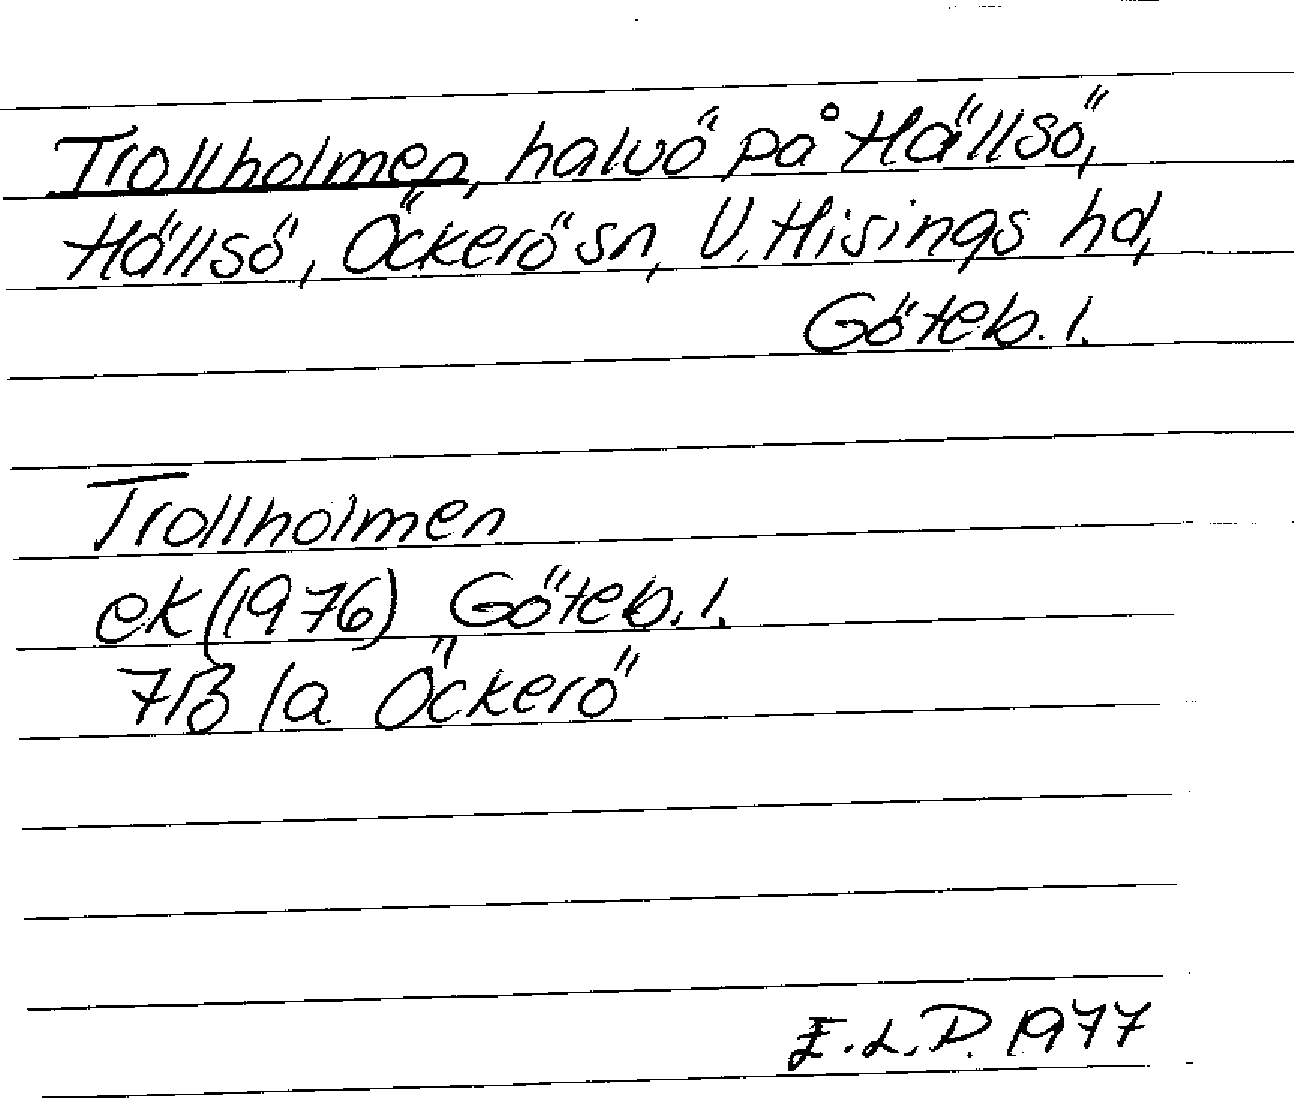 Trollholmen, halvö på Hällsö,
Hällsö, Öckerö sn, V. Hisings hd,
Göteb. l.
Trollholmen
ek (1976) Göteb. l.
7B 1a Öckerö
E.L.P. 1977